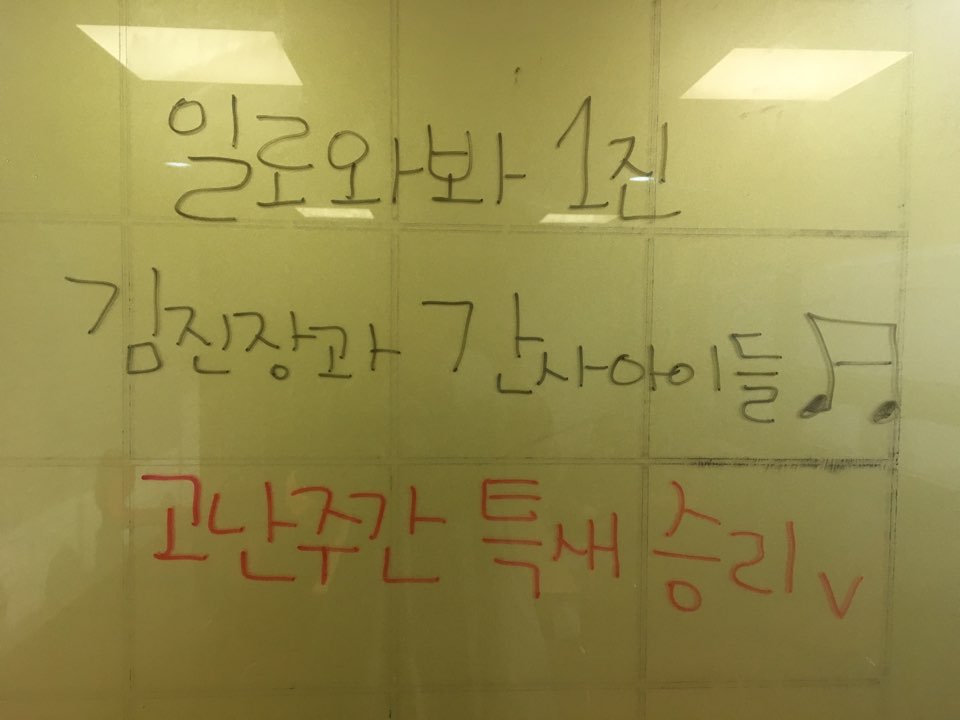 일로와봐 1진
김진장과 간사아이들 🎵
고난주간 특새 승리 v